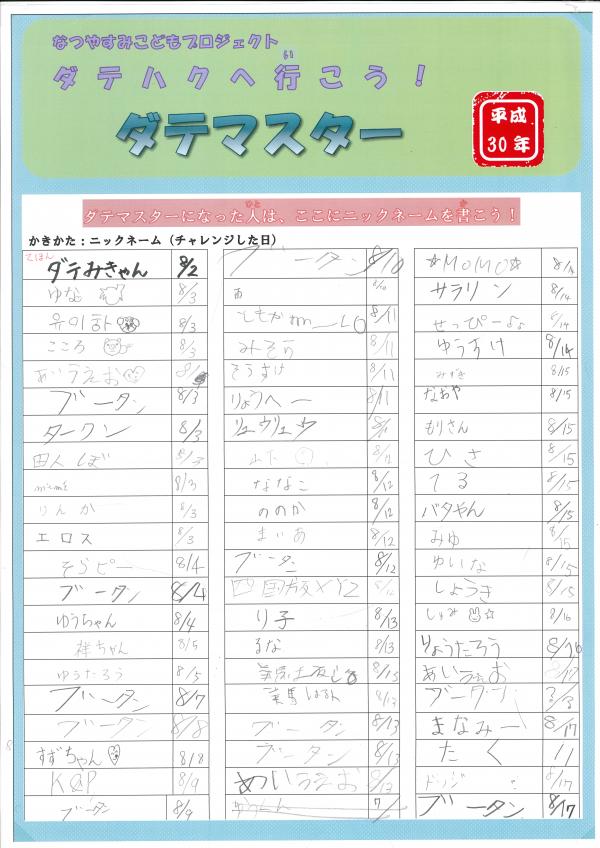 なつやすみこどもプロジェクト
ダテハクへ行こう！
い
ダテマスター
平成
30年
ダテマスターになった人は、ここにニックネームを書こう！
ひと
か
かきかた：ニックネーム（チャレンジした日）
みほん
ダテみきゃん 8/2
ゆな 8/3
유이하 8/3
こころ 8/3
あいうえお 8/
ブータン 8/3
ターワン 8/3
田人しぼ 8/3
mieme 8/3
りんか 8/3
エロス 8/3
そらピー 8/4
ブータン 8/4
ゆうちゃん 8/4
祥ちゃん 8/5
ゆうたろう 8/5
ブータン 8/7
ブータン 8/8
すずちゃん 8/8
K@P 8/9
ブータン 8/9
ブータン 8/10
8/10
ともか 8/11
みそら 8/11
そうすけ 8/11
りょうへー 8/11
リュウリュウ
山下 8/12
ななこ 8/12
ののか 8/12
まいあ 8/12
ブータン 8/12
四国版XYZ
り子 8/13
るな 8/13
8/13
はると 8/13
ブータン 8/13
ブータン 8/13
あいうえお 8/13
☆MOMO☆ 8/14
サラリン 8/14
せっぴーよょ 8/14
ゆうすけ 8/14
みゆき 8/15
なおや 8/15
もりさん 8/15
ひさ 8/15
てる 8/15
バタやん 8/15
みゆ 8/15
ゆいな 8/15
しょうき 8/15
しゅみ☆ 8/16
りょうたろう 8/16
あいうえお 8/17
ブータン
まなみー 8/17
たく 〃
ドッジ 8/17
ブータン 8/17